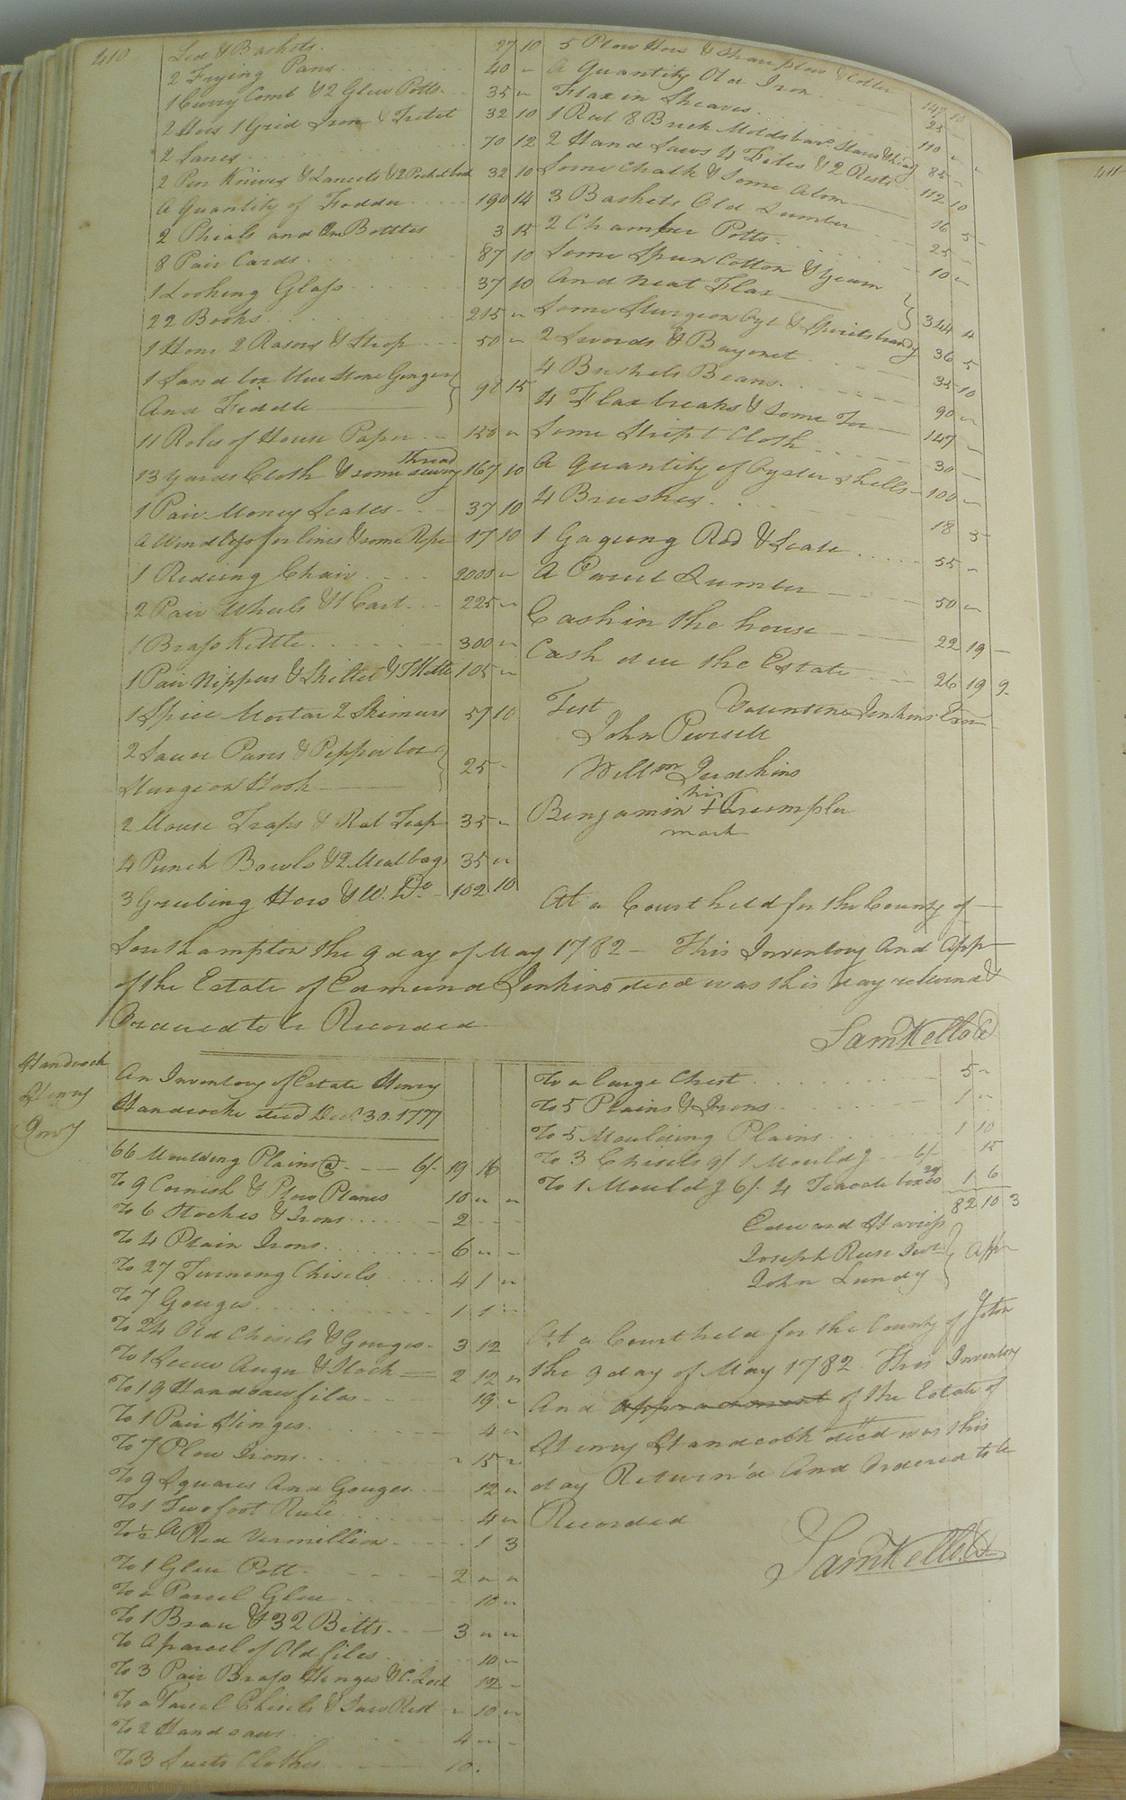 410
Led & Baskets 27 10
2 Frying Pans 40 "
1 Curry Comb & 2 Glew Potts 35 "
2 Hoes 1 Grid Iron & Trivet 32 10
2 Lanes 70 12
2 Pen Knives & Lancets & 2 Pocket 32 10
A Quantity of Fodder 190 14
2 Phials and One Bottles 3 15
8 Pair Cards 87 10
1 Looking Glass 37 10
22 Books 215 "
1 Hone 2 Rasors & Strop 50 "
1 Sand box
And Fiddle 98 15
11 Roles of House Paper 150 "
13 yards Cloth & some sewing thread 167 10
1 Pair Money Scales 37 10
A Windlass for lines & some Rope 17 10
1 Rideing Chair 2000 "
2 Pair Wheels & 1 Cart 225 "
1 Brass Kettle 300 "
1 Pair Nippers & Skillet & 105 "
1 Spice Mortar 2 Skimers 57 10
2 Sauce Pans & Pepper box
Sturgeon Hook 25 "
2 Mouse Traps & Rat Trap 35 "
4 Punch Bowls & 2 Meal bags 35 "
3 Grubing Hoes & W. Do 102 10
5 Plow Hoes & 142 10
A Quantity Old Iron 25 "
Flax in Sheaves 110 "
1 Reel 8 Brick Molds 85 "
2 Hand Saws 4 Files & 2 Rests 112 10
Some Chalk & Some Alom 16 5
3 Baskets Old Lumber 25 "
2 Chamber Potts 10 "
Some Spun Cotton & Yearn
And neat Flax 344 4
Some Sturgeon Oyl & Spirits 36 5
2 Swords & Bayonet 35 10
4 Bushels Beans 90 "
4 Flax breaks & Some Tow 147 "
Some Stript Cloth 30 "
A Quantity of Oyster Shells 100 "
4 Brushes 18 5
1 Gageing Rod & Scale 55 "
A Parcel Lumber 50 "
Cash in the house 22 19 "
Cash due the Estate 26 19 9
Test Valentine Jenkins Exor
John Pursell
Willm Judkins
Benjamin his + mark Crumpler
At a Court held for the County of
Southampton the 9 day of May 1782 This Inventory And App
of the Estate of Edmund Jenkins decd was this day returned &
Ordered to be Recorded
Sam Kello Cl
Handcock
Henry
Invy
An Inventory of Estate Henry
Handcocke decd Decr 30 1777
66 Moulding Plains @ 6/ 19 16
To 9 Cornish & Plow Planes 10 " "
To 6 Stockes & Irons 2 " "
To 4 Plain Irons 6 " "
To 27 Turning Chisels 4 1 "
To 7 Gouges 1 1 "
To 24 Old Chisels & Gouges 3 12
To 1 Screw Auger & Stock 2 12 "
To 19 Handsaw files 19 "
To 1 Pair Hinges 4 "
To 7 Plow Irons " 15 "
To 9 Squares And Gouges 12 "
To 1 Two foot Rule 4 "
To ½ lb Red Vermillion 1 3
To 1 Glew Pott 2 " "
To a Parcel Glew 10 "
To 1 Brace & 32 Bitts 3 " "
To A parcel of Old files 10 "
To 3 Pair Brass Hinges & C. Lock 12 "
To a Parcel Chisels & Saw Rest " 10 "
To 2 Handsaws 4 " "
To 3 Suits Clothes 10 "
To a large Chest 5 "
To 5 Plains & Irons 1 "
To 5 Moulding Plains 1 10
To 3 Chisels 9/ 1 Mould'g 6/ 15
To 1 Mould'g 6/ 4 boxes 20/ 1 6
82 10 3
Edward Harriss
Joseph Reese Junr
John Lundy
Appr
At a Court held for the County of Soton
the 9 day of May 1782 This Inventory
And appraisment of the Estate of
Henry Handcock decd was this
day Return'd And Ordered to be
Recorded
Sam Kello Cl
411